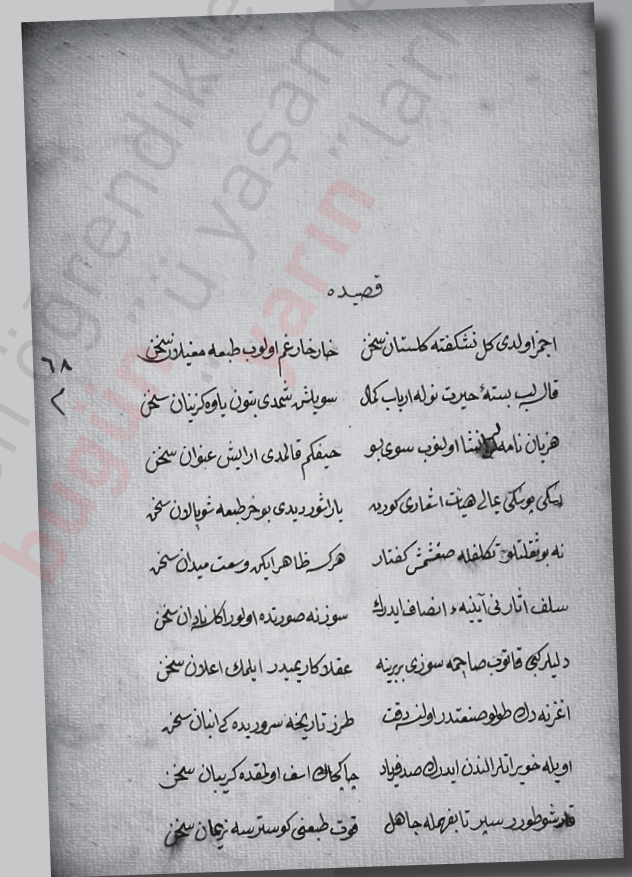 قصیده
اجمز اولدی کل نشکفته کلستان سخن خار خار غم اولوب طبعمه مغیلان سخن
٦٨
قالسه لب بستهٔ حیرت نوله ارباب کمال سویلش شمدی بتون یاوه کزینان سخن
هزیان نامه انشا اولنوب سوی بسو حیفکم قالمدی ارایش عنوان سخن
هیئت اشعاری کوروب یاراشور دیدی بو خر طبعمه پالان سخن
نه بو ثقلتلو تکلفله کفتار هرکسه ظاهر ایکن وسعت میدان سخن
سلف اثارنی آیینهء انصاف ایدرك سوز نه صورتده اولور اکلا نادان سخن
دلیلر کبی قاتوب صاچمه سوزی بربرینه عقلا کاریمیدر ایلمك اعلان سخن
اغزنه دك طولو صنعتدر اولنسه دقت طرز تاریخه سروریده کی انبان سخن
اویله خویراتلر الندن ایدرك صد فریاد چاك چاك اسف اولمقده کریبان سخن
قارشو طورر سپر تابفهمله جاهل قوت طبعنی کوسترسه نریمان سخن
öğrendikle
ü yaşama
bugün yarın
"ları